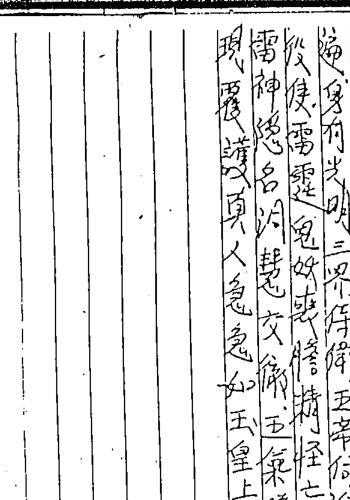 遍身有光明三界侍衛五帝
役使雷霆鬼妖喪膽精怪亡
雷神隱名洞慧交徹五氣
現覆護真人急急如玉皇上